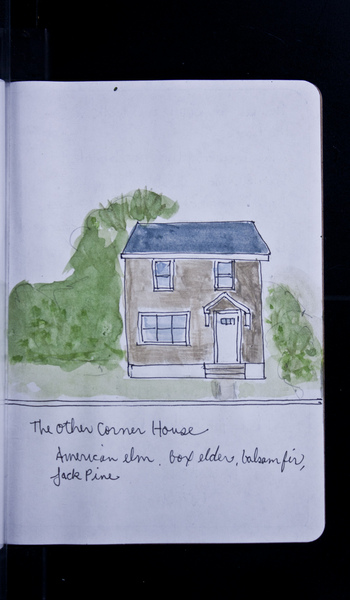 The other Corner House
American elm, box elder, balsam fir,
Jack Pine